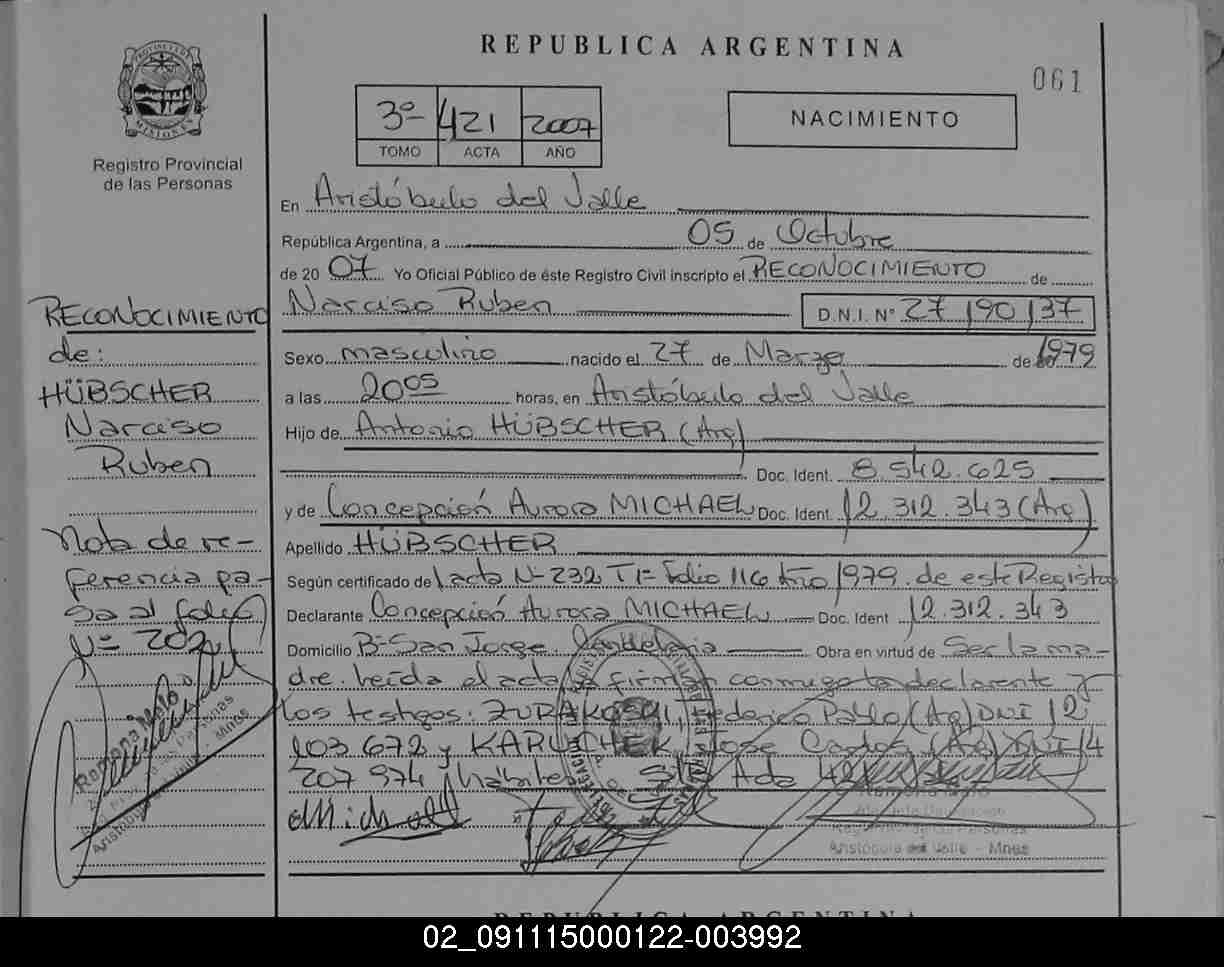 REPUBLICA ARGENTINA
061
PROVINCIA DE MISIONES
Registro Provincial
de las Personas
3º 421 2007
TOMO ACTA AÑO
NACIMIENTO
En Aristóbulo del Valle
República Argentina, a 05 de Octubre
de 2007 Yo Oficial Público de éste Registro Civil inscripto el RECONOCIMIENTO de
Narciso Ruben D.N.I. Nº 27 190 137
Sexo masculino nacido el 27 de Marzo de 1979
a las 20 05 horas, en Aristóbulo del Valle
Hijo de Antonio HÜBSCHER (Arg)
Doc. Ident. 8.542.625
y de Concepción Aurora MICHAEL Doc. Ident. 12.312.343 (Arg)
Apellido HÜBSCHER
Según certificado de acta Nº 232 Tº 1º Folio 116 Año 1979. de este Registro
Declarante Concepción Aurora MICHAEL Doc. Ident. 12.312.343
Domicilio Bº San Jorge. Candelaria Obra en virtud de Ser la ma-
dre. Leída el acta la firman conmigo la declarante y
los testigos: Federico Pablo (Arg) DNI 12
103 672 y Jose Carlos (Arg) DNI 14
207 974 hábiles.
RECONOCIMIENTO
de:
HÜBSCHER
Narciso
Ruben
Nota de re-
ferencia pa-
sa al folio
Nº 202
Ramona Melo
Aristóbulo del Valle - Mnes
Ramona Melo
Registro de las Personas
Aristobulo del Valle - Mnes
REPUBLICA ARGENTINA
02_091115000122-003992